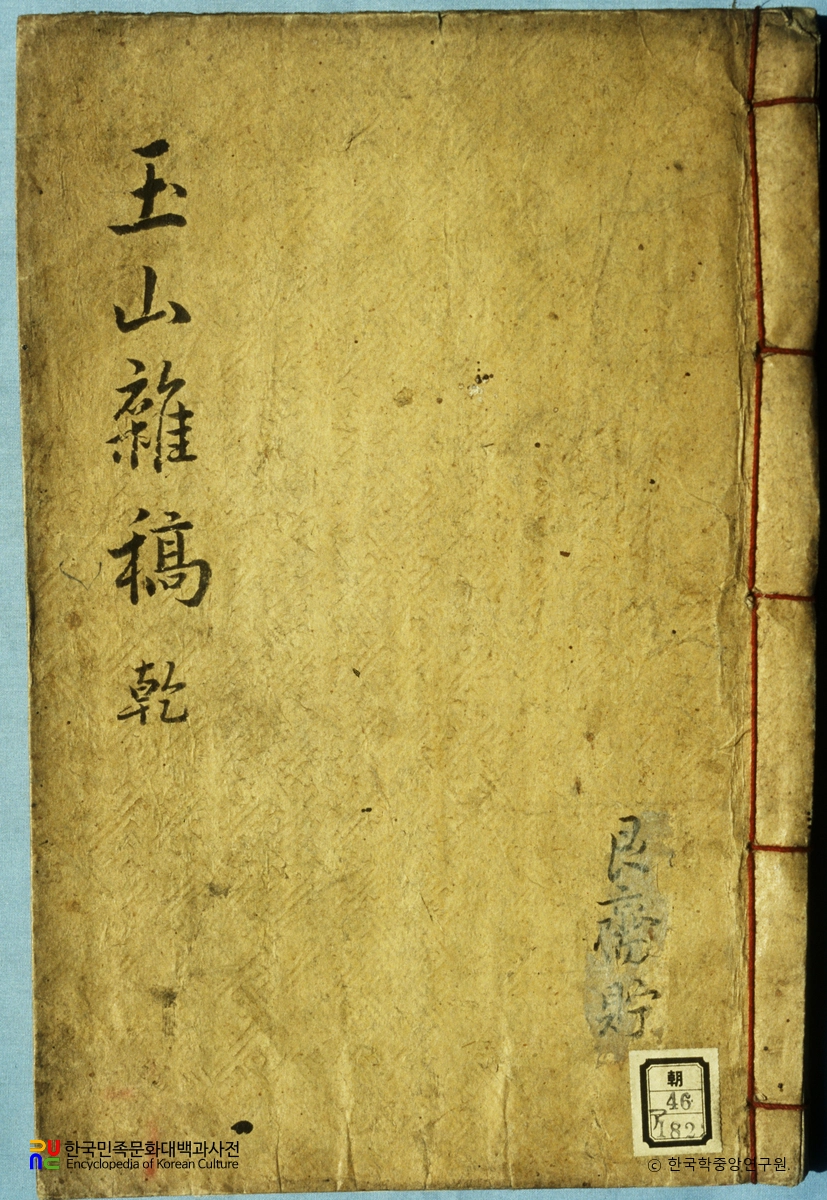 玉山雜稿 乾
艮齋貯
朝
46
182
한국민족문화대백과사전
Encyclopedia of Korean Culture
© 한국학중앙연구원